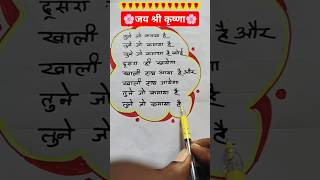 🌸जय श्री कृष्णा🌸
तुने जो कमाया है
तुने जो कमाया है
तुने जो कमाया है कोई
दूसरा ही खायेगा
खाली हाथ आया है और
खाली हाथ जायेगा
तुने जो कमाया है
तुने जो कमाया है
दूसरा
खाली